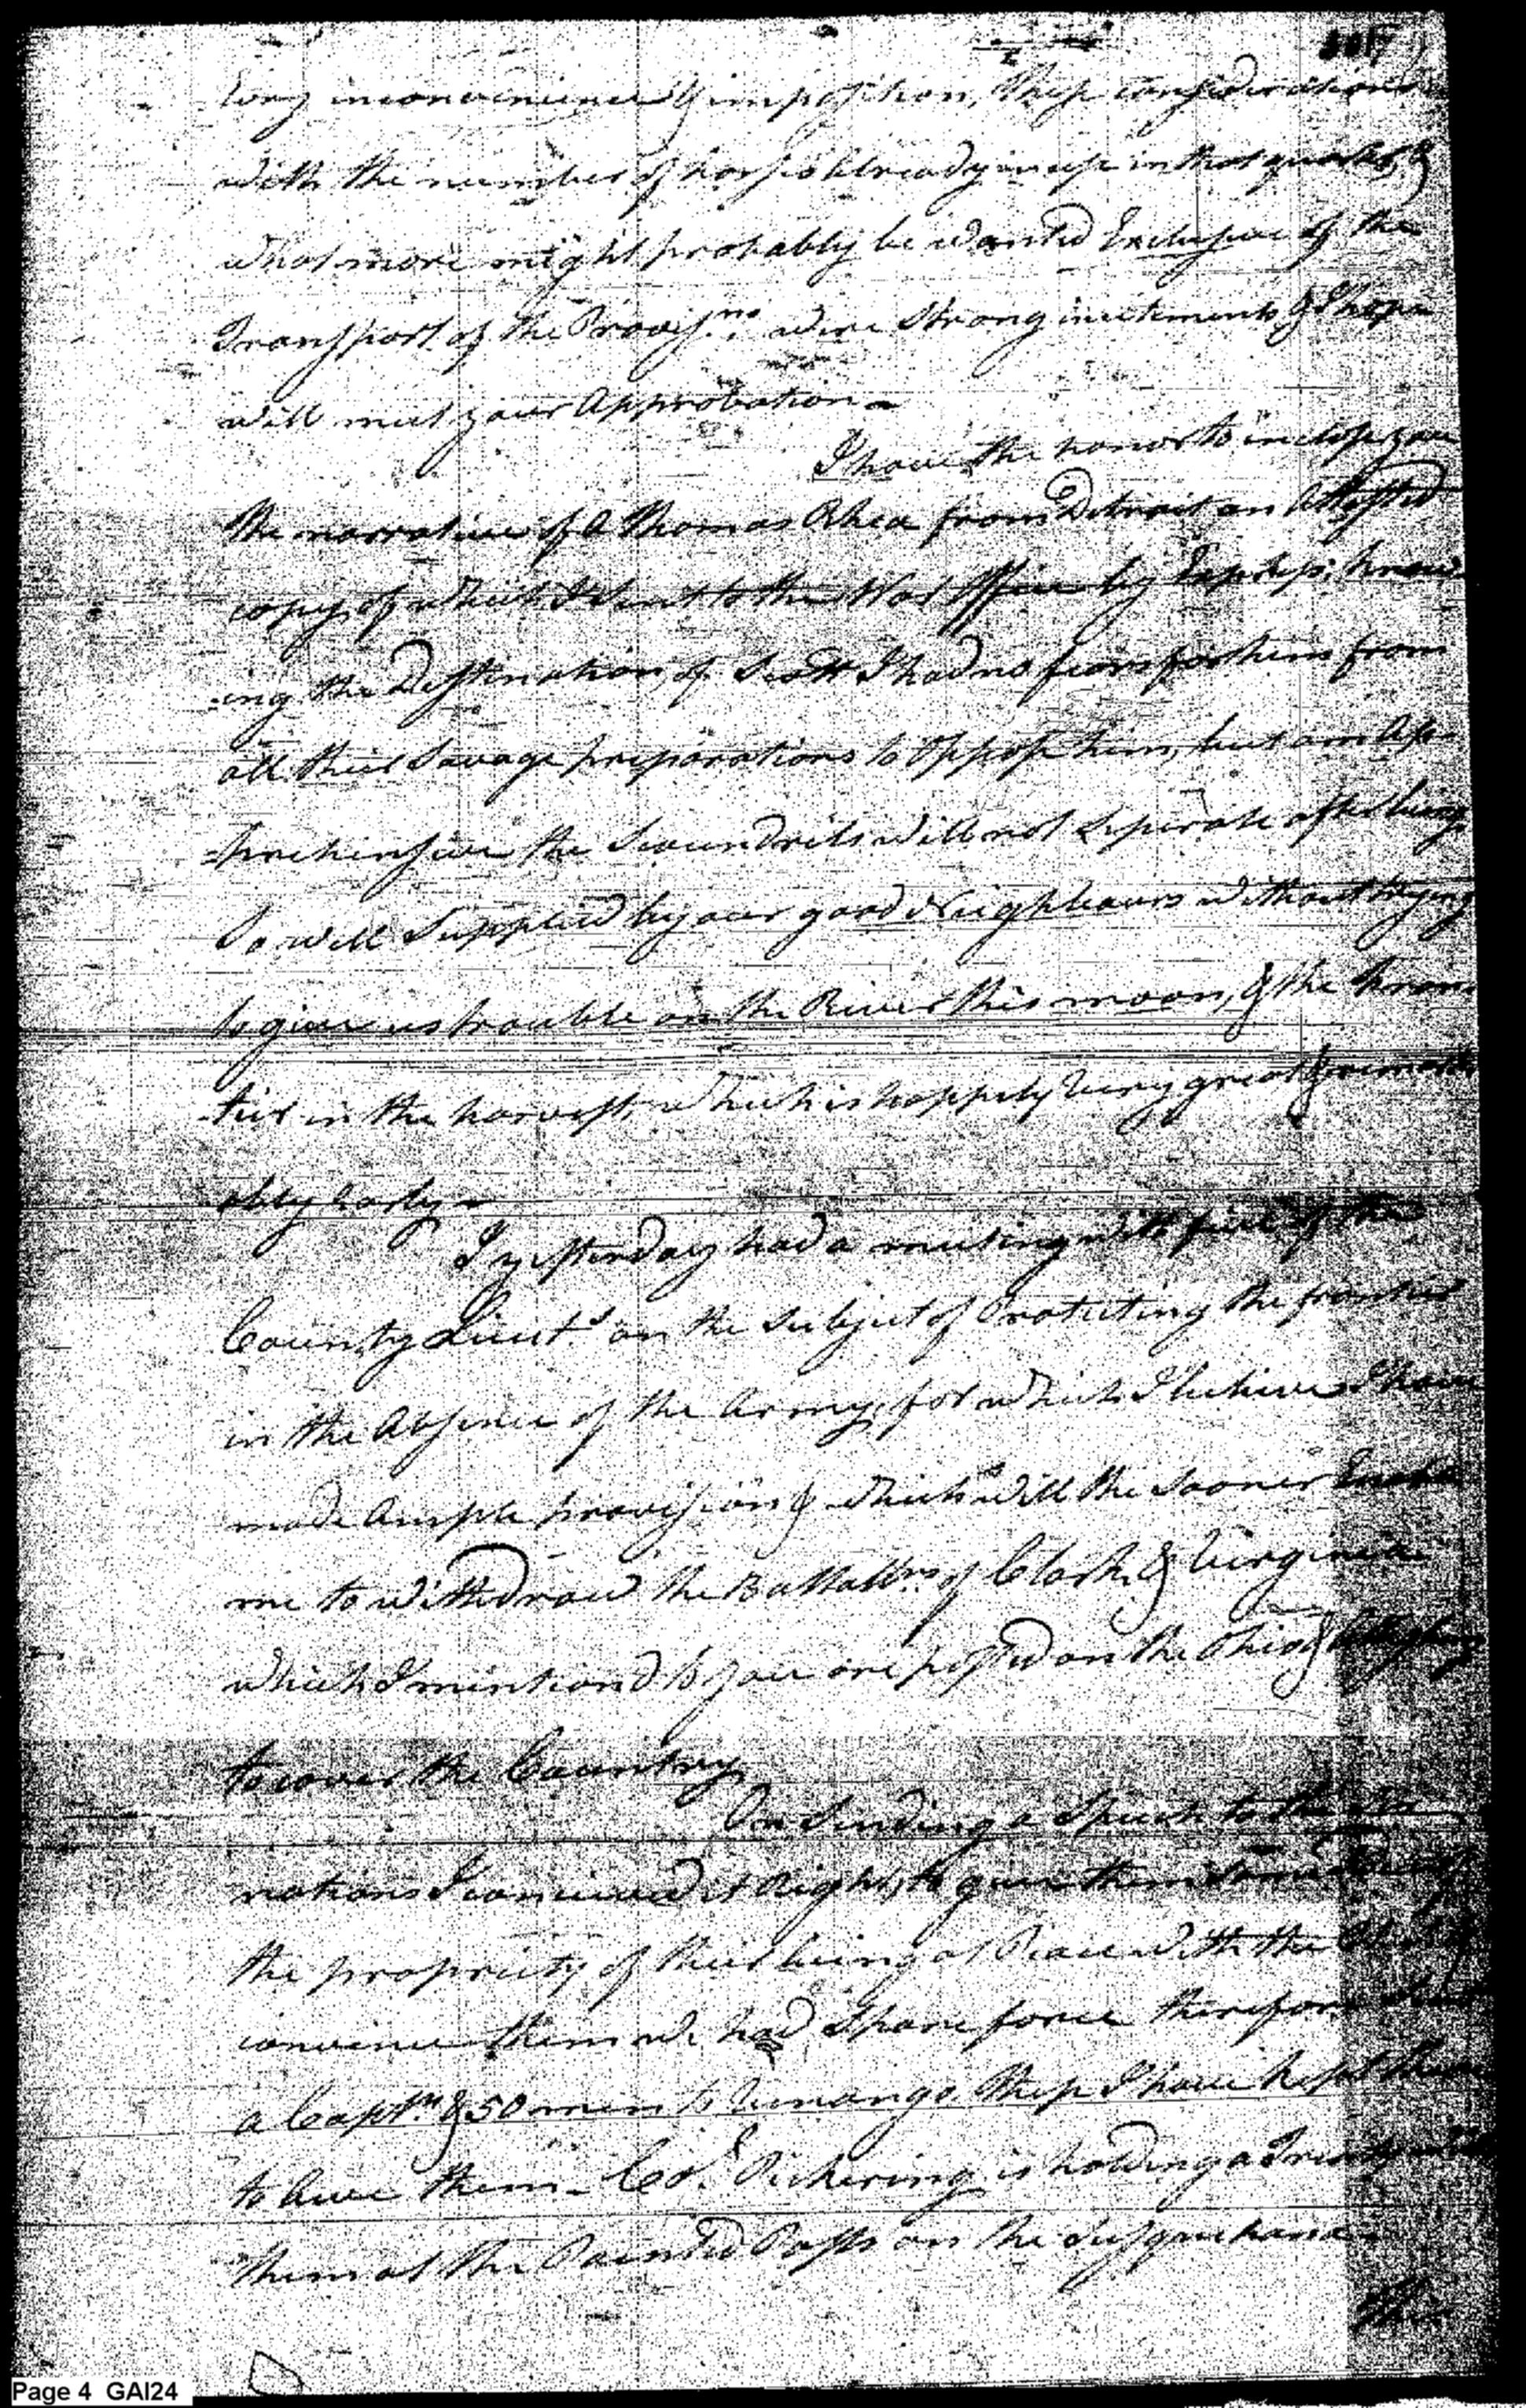 every inconvenience & imposition, these considerations
with the number of horses already in use in that quarter, &
what more might probably be wanted Exclusive of the
Transport of the Provisns. were strong incitements & I hope
will meet your Approbation -
I have the honor to inclose you
the narrative of a Thomas Rhea from Detroit an Attested
copy of which I sent to the War Office by Express; know
=ing the Destination of Scott I had no fears for him from
all their Savage preparations to Oppose him, but am Ap-
=prehensive the Scoundrels will not Seperate after being
So well Supplied by our good Neighbours without trying
to give us trouble on the River this moon, & the Fron
-tier in the harvest, which is happily very great & remark
ably Early -
I yesterday had a meeting with five of the
County Lieuts. on the Subject of Protecting the frontier
in the Absence of the Army, for which I believe I have
made Ample provision & which will the sooner Enable
me to withdraw the Battallns. of Clark & Virginia
which I mentiond to you are posted on the Ohio & Allegheny
to cover the Country
On Sending a Speech to the Six
nations I conceived it Right, to give them some
the propriety of their being at Peace with the
convince them we had Spare force therefore
a Captn. & 50 men to Venango these I have kept there
to Awe them - Col. Pickering is holding a Treaty with
them at the Painted Posts on the Susquehana -
This
Page 4 GAI24